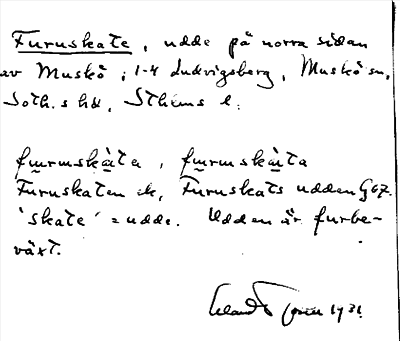 Furuskate, udde på norra sidan
av Muskö i 1-4 Ludvigsberg, Muskö sn,
Soth.s hd, Sthlms l.
furuskàta, furuskàta
Furuskaten ek, Furuskats udden GöZ.
'skate' = udde. Udden är furube-
växt.
1931